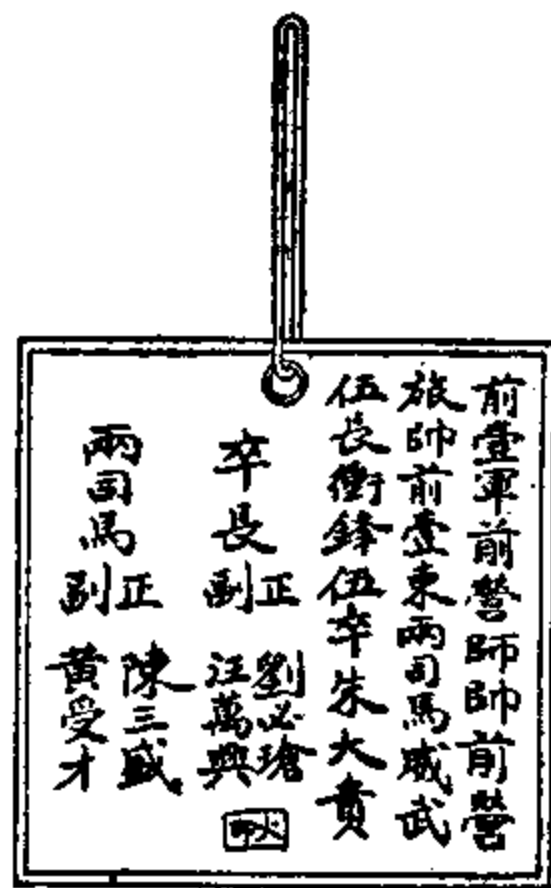 前壹軍前營師帥前營
旅帥前壹東兩司馬威武
伍長衝鋒伍卒朱大貴
卒長
正 劉必瑲
副 汪萬興
兩司馬
正 陳三盛
副 黃受才